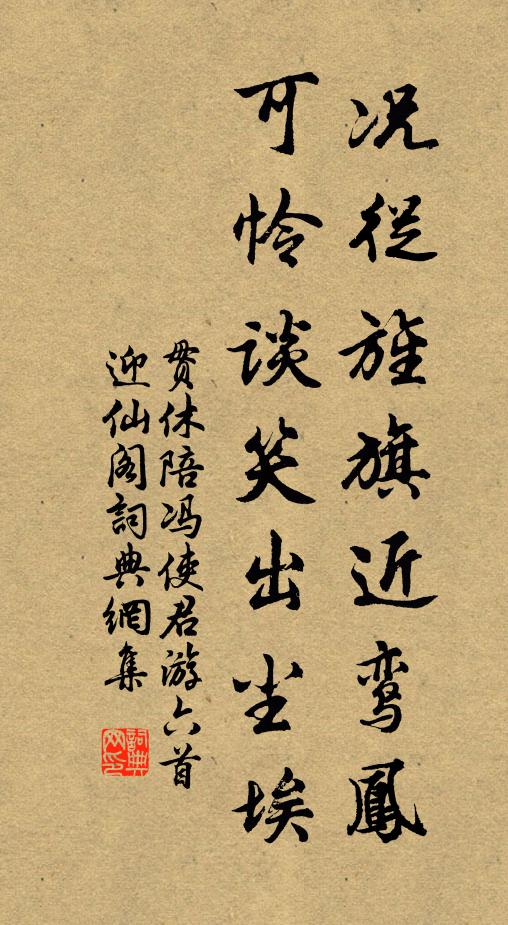 况從旌旗近鸾鳳
可怜談笑出尘埃
贯休陪冯使君游六首
迎仙阁詞典網集
詞典網印